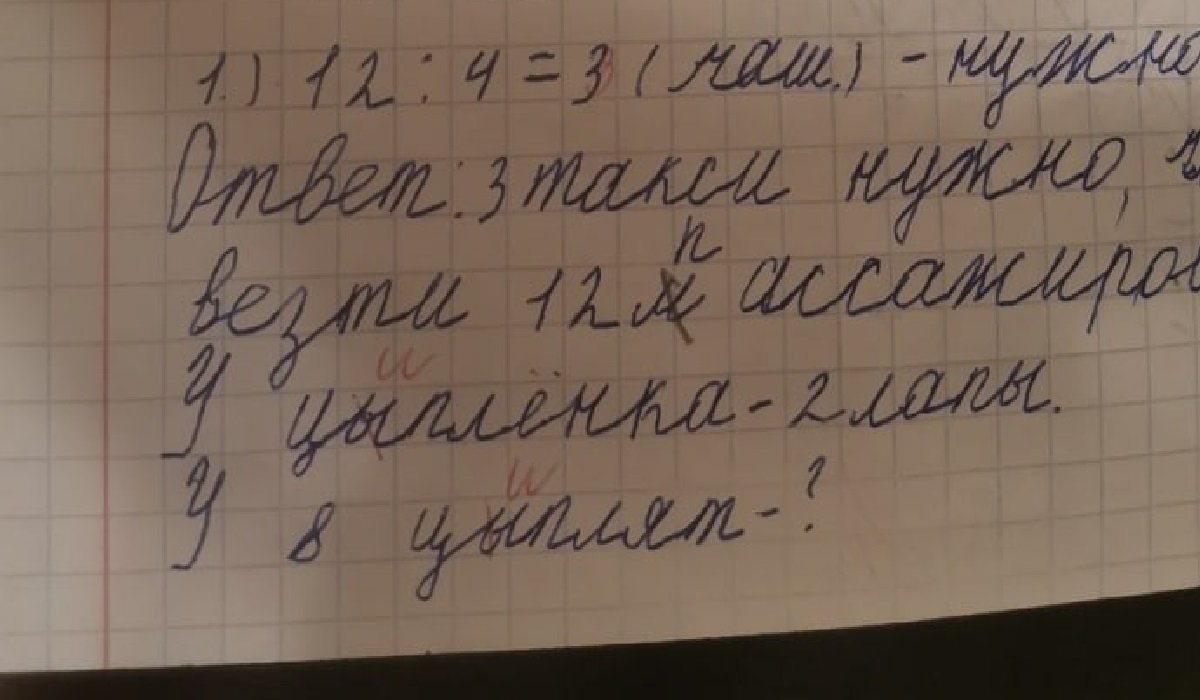 1.) 12 : 4 = 3 (маш.) - нужно
Ответ: 3 такси нужно,
везти 12 п ассажиров
У цыплёнка - 2 лапы.
и
У 8 цыплят - ?
и